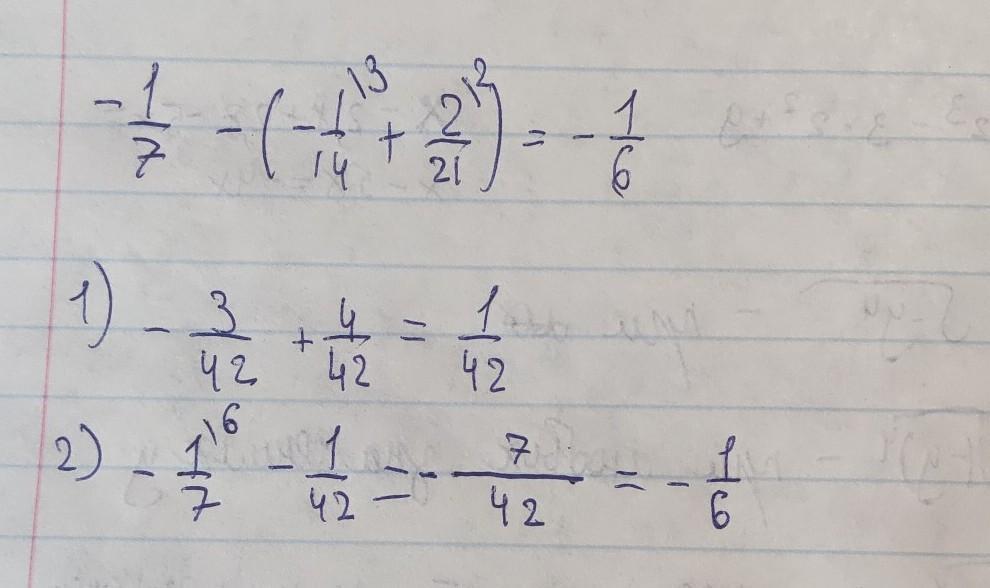 -1/7 - (-1/14 \3 + 2/21 \2) = -1/6
1) -3/42 + 4/42 = 1/42
2) -1/7 \6 - 1/42 = -7/42 = -1/6